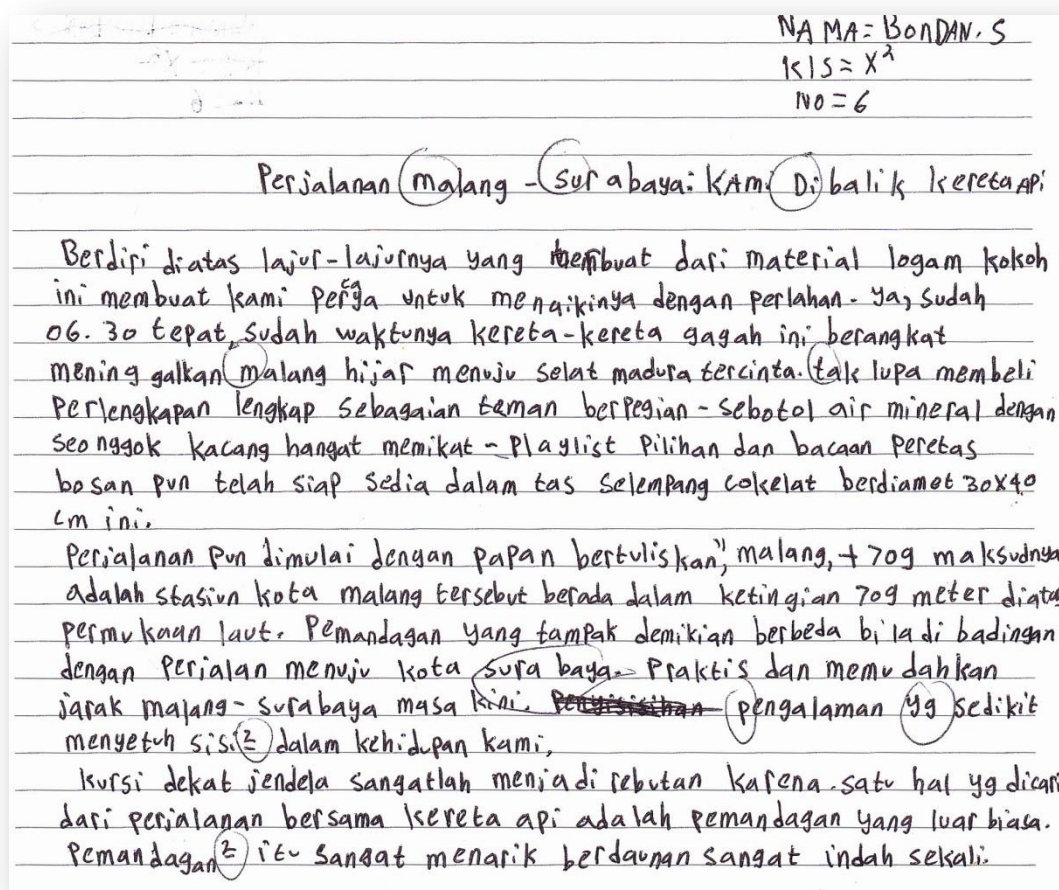 NAMA = BONDAN. S
KlS = X²
NO = 6
Perjalanan malang - surabaya: KAMi Di balik kereta APi
Berdiri diatas lajur-lajurnya yang membuat dari material logam kokoh
ini membuat kami perga untuk menaikinya dengan perlahan. ya, sudah
06.30 tepat, sudah waktunya kereta-kereta gagah ini berangkat
mening galkan malang hijar menuju selat madura tercinta. tak lupa membeli
perlengkapan lengkap sebagaian teman berpegian - sebotol air mineral dengan
seonggok kacang hangat memikat - Playlist Pilihan dan bacaan peretas
bosan pun telah siap sedia dalam tas selempang cokelat berdiamet 30x40
cm ini.
Perjalanan pun dimulai dengan papan bertuliskan," malang, + 709 maksudnya
adalah stasiun kota malang tersebut berada dalam ketingian 709 meter diatas
permukaan laut. Pemandagan yang tampak demikian berbeda bila di badingan
dengan perjalan menuju kota sura baya. Praktis dan memudahkan
jarak malang - surabaya masa kini. pengalaman yg sedikit
menyetuh sisi² dalam kehidupan kami,
kursi dekat jendela sangatlah menjadi rebutan karena. satu hal yg dicari
dari perjalanan bersama kereta api adalah pemandagan yang luar biasa.
Pemandagan² itu sangat menarik berdaunan sangat indah sekali.